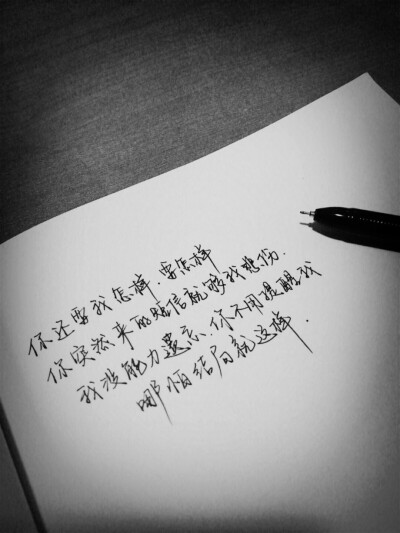 你还要我怎样.要怎样
你突然来的短信就够我悲伤.
我没能力遗忘.你不用提醒我
哪怕结局就这样.